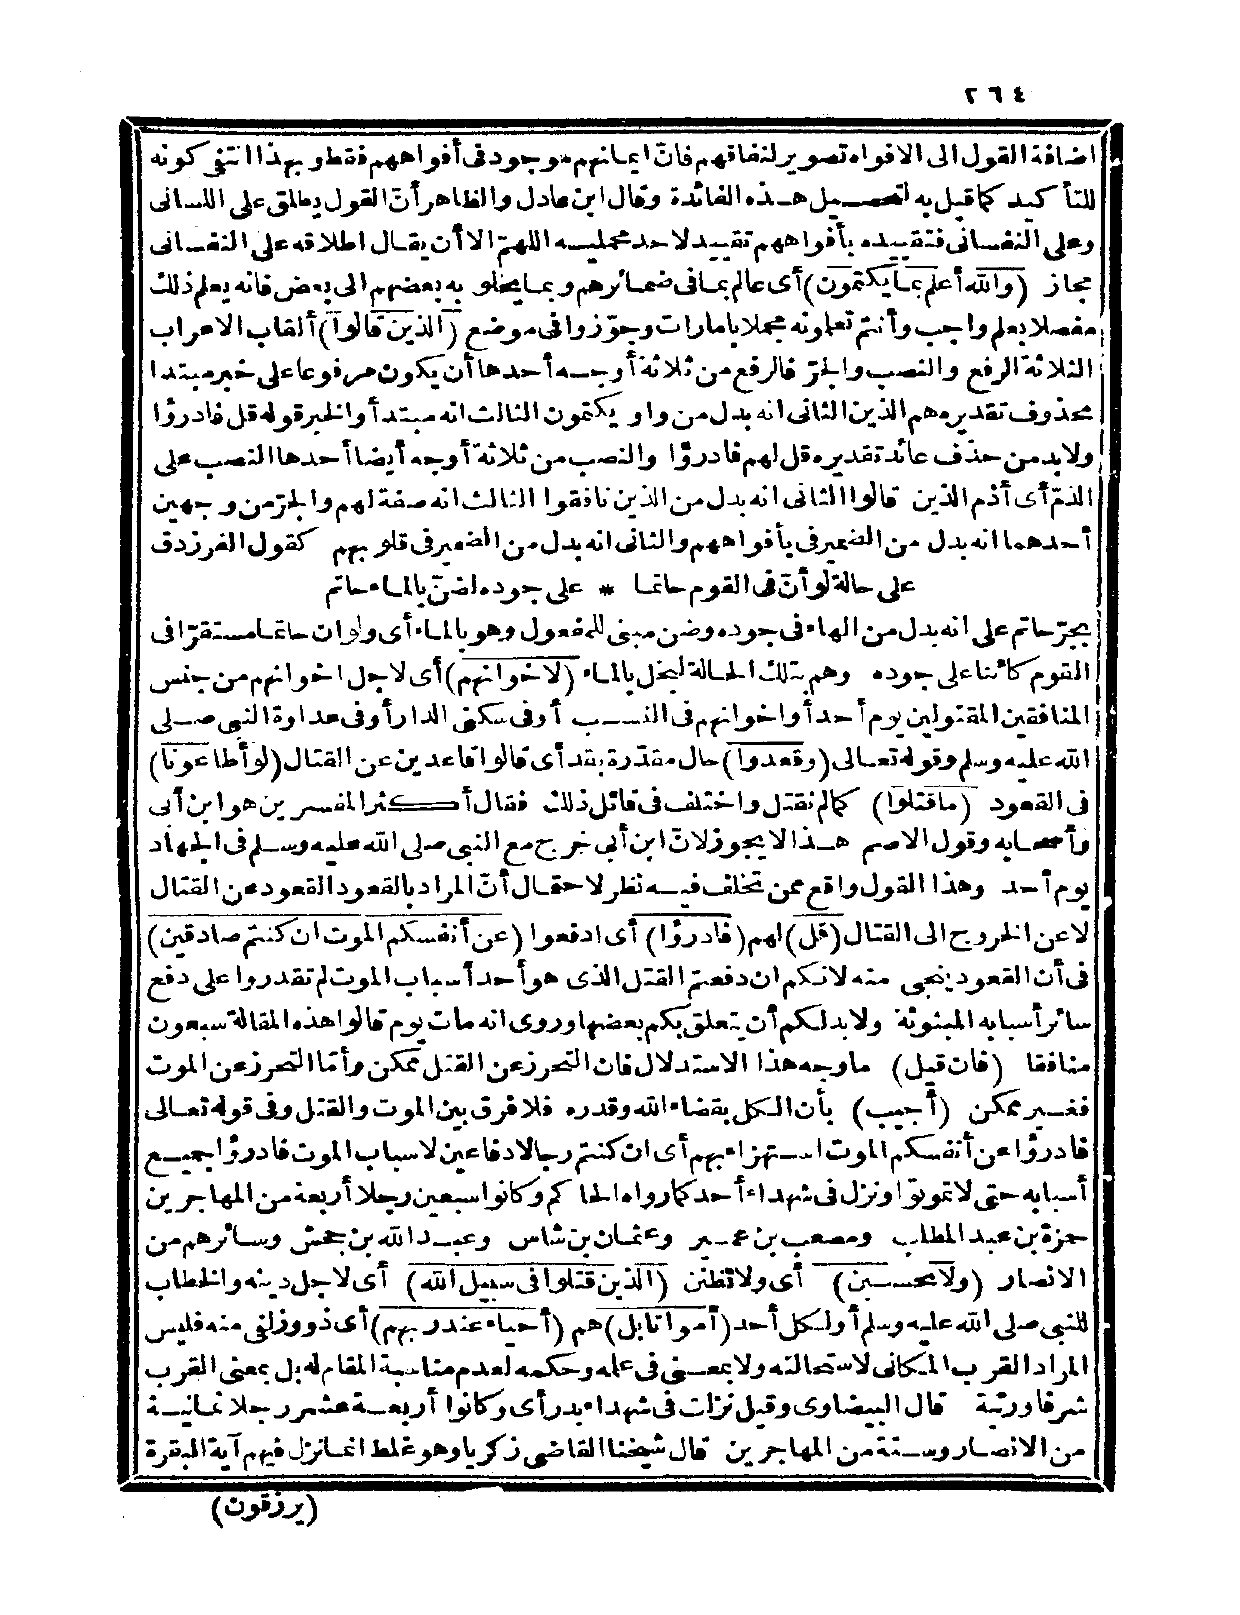 ٢٦٤
اضافة القول الى الافواه تصوير لنفاقهم فانّ ايمانهم موجود فى أفواههم فقط وبهذا انتفى كونه
للتأكيد كما قيل به لتحصيل هذه الفائدة وقال ابن عادل والظاهر أنّ القول يطلق على اللسانى
وعلى النفسانى فتقييده بأفواههم تقييد لاحد محمليه اللهمّ الا أن يقال اطلاقه على النفسانى
مجاز (والله أعلم بما يكتمون) أى عالم بما فى ضمائرهم وبما يخلو به بعضهم الى بعض فانه يعلم ذلك
مفصلا بعلم واجب وأنتم تعلمونه مجملا بامارات وجوّزوا فى موضع (الذين قالوا) ألقاب الاعراب
الثلاثة الرفع والنصب والجرّ فالرفع من ثلاثة أوجه أحدها أن يكون مرفوعا على خبر مبتدا
محذوف تقديره هم الذين الثانى انه بدل من واو يكتمون الثالث انه مبتدأ والخبر قوله قل فادرؤا
ولابد من حذف عائد تقديره قل لهم فادرؤا والنصب من ثلاثة أوجه أيضا أحدها النصب على
الذمّ أى أذم الذين قالوا الثانى انه بدل من الذين نافقوا الثالث انه صفة لهم والجرّ من وجهين
أحدهما انه بدل من الضمير فى بأفواههم والثانى انه بدل من الضمير فى قلوبهم كقول الفرزدق
على حالة لو أنّ فى القوم حاتما * على جوده لضنّ بالماء حاتم
بجرّ حاتم على انه بدل من الهاء فى جوده وضن مبنى للمفعول وهو بالماء أى ولو ان حاتما مستقرّا فى
القوم كائنا على جوده وهم بتلك الحالة لبخل بالماء (لاخوانهم) أى لاجل اخوانهم من جنس
المنافقين المقتولين يوم أحد أو اخوانهم فى النسب أو فى سكنى الدار أو فى عداوة النبى صلى
الله عليه وسلم وقوله تعالى (وقعدوا) حال مقدرة بقد أى قالوا قاعدين عن القتال (لو أطاعونا)
فى القعود (ما قتلوا) كما لم نقتل واختلف فى قائل ذلك فقال أكثر المفسرين هو ابن أبى
وأصحابه وقول الاصم هذا لا يجوز لانّ ابن أبى خرج مع النبى صلى الله عليه وسلم فى الجهاد
يوم أحد وهذا القول واقع ممن تخلف فيه نظر لاحتمال أنّ المراد بالقعود القعود عن القتال
لا عن الخروج الى القتال (قل) لهم (فادرؤا) أى ادفعوا (عن أنفسكم الموت ان كنتم صادقين)
فى أن القعود ينجى منه لانكم ان دفعتم القتل الذى هو أحد أسباب الموت لم تقدروا على دفع
سائر أسبابه المبثوثة ولا بد لكم أن يتعلق بكم بعضها وروى انه مات يوم قالوا هذه المقالة سبعون
منافقا (فان قيل) ما وجه هذا الاستدلال فان التحرز عن القتل ممكن وأمّا التحرز عن الموت
فغير ممكن (أجيب) بأن الكل بقضاء الله وقدره فلا فرق بين الموت والقتل وفى قوله تعالى
فادرؤا عن أنفسكم الموت استهزاء بهم أى ان كنتم رجالا دفاعين لاسباب الموت فادرؤا جميع
أسبابه حتى لا تموتوا ونزل فى شهداء أحد كما رواه الحاكم وكانوا سبعين رجلا أربعة من المهاجرين
حمزة بن عبد المطلب ومصعب بن عمير وعثمان بن شماس وعبد الله بن جحش وسائرهم من
الانصار (ولا تحسبن) أى ولا تظنن (الذين قتلوا فى سبيل الله) أى لاجل دينه والخطاب
للنبى صلى الله عليه وسلم أو لكل أحد (أمواتا بل) هم (أحياء عند ربهم) أى ذوو زلفى منه فليس
المراد القرب المكانى لاستحالته ولا بمعنى فى علمه وحكمه لعدم مناسبة المقام له بل بمعنى القرب
شرفا ورتبة قال البيضاوى وقيل نزلت فى شهداء بدر أى وكانوا أربعة عشر رجلا ثمانية
من الانصار وستة من المهاجرين قال شيخنا القاضى زكريا وهو غلط انما نزل فيهم آية البقرة
(يرزقون)